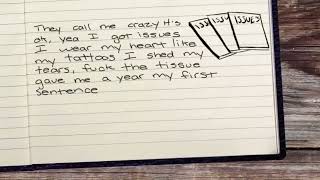 They call me crazy it's
ok, yea I got issues
I wear my heart like
my tattoos I shed my
tears, fuck the tissue
gave me a year my first
sentence
ISSUES